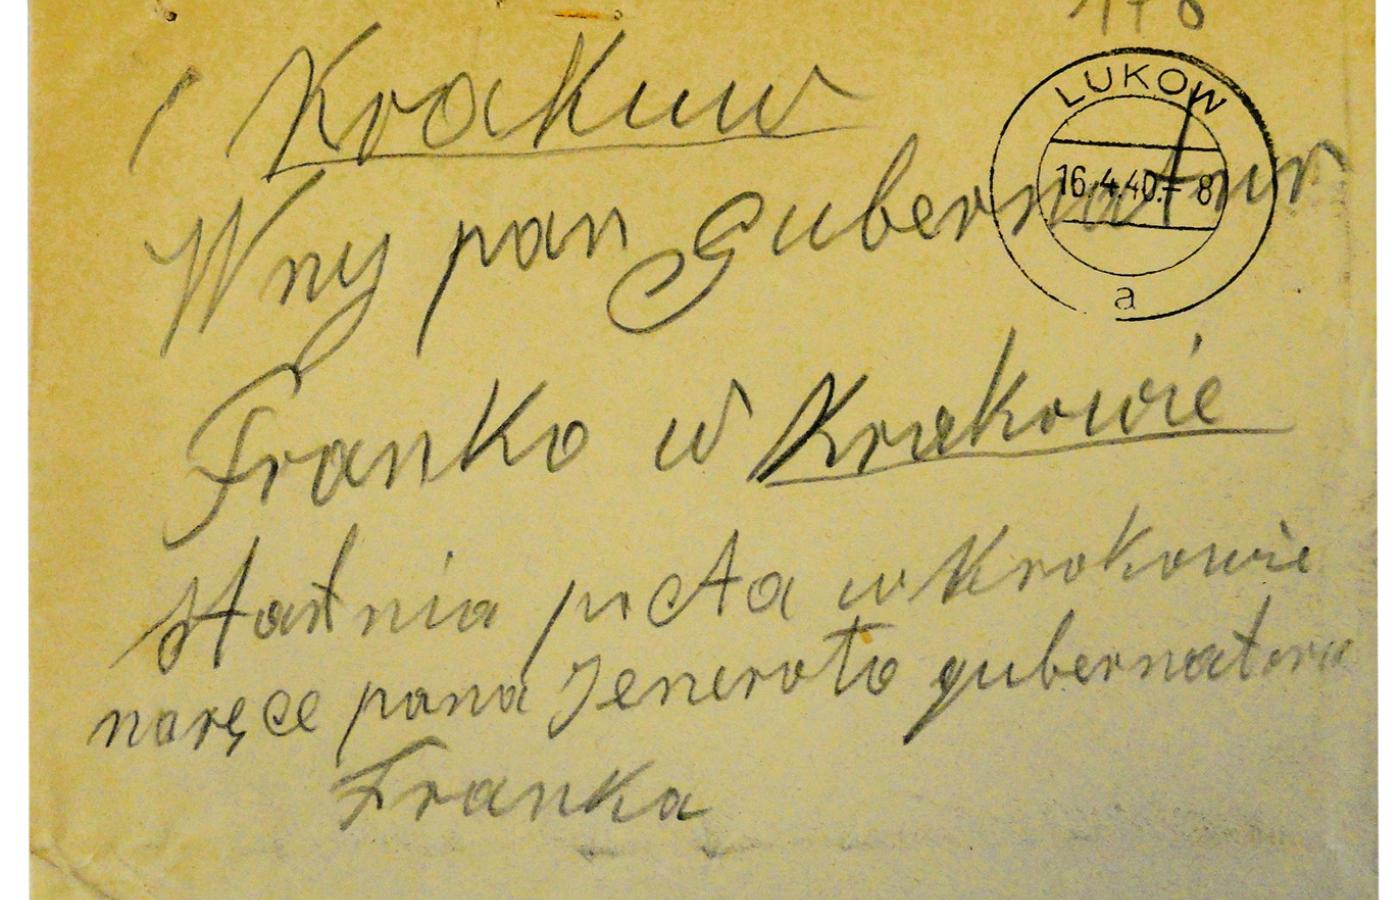 178
Krakuw
LUKOW
16.4.40.- 8
a
Wny pan Gubernatur
Franko w Krakowie
pcAta w Krokowie
naręce pana Jeneroło gubernatora
Franka